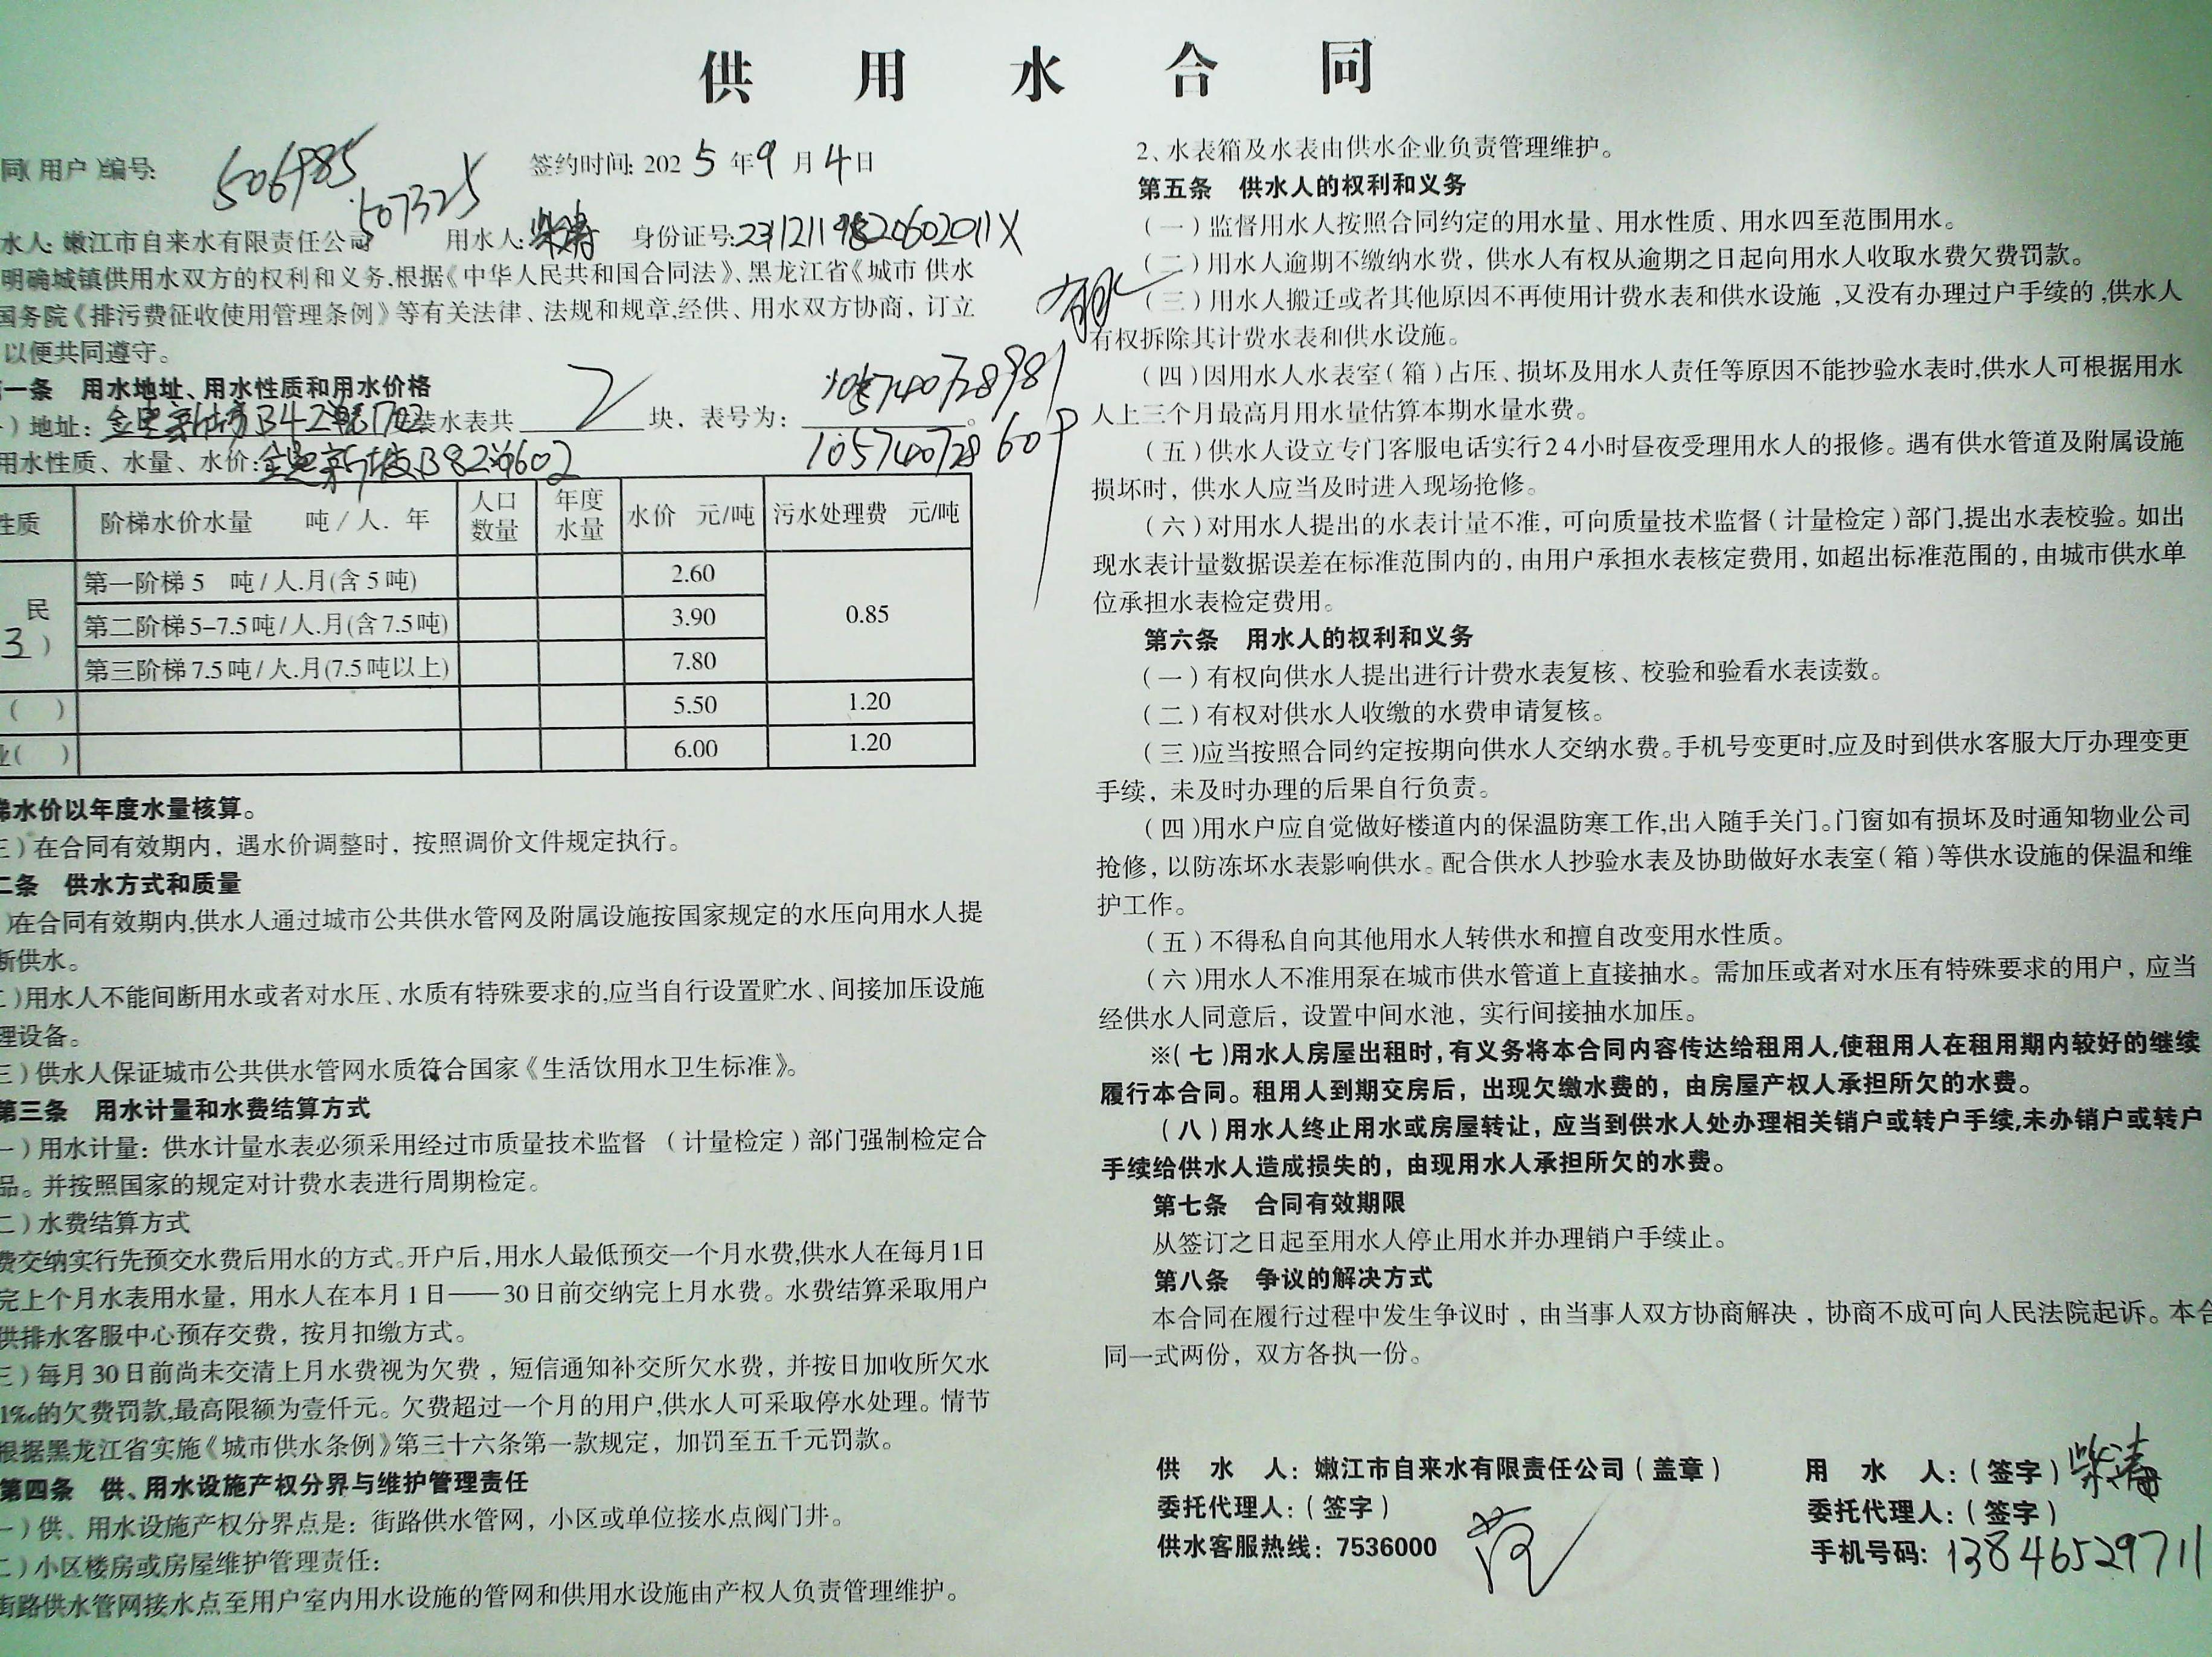 供用水合同
同(用户)编号: 506985 507325 签约时间: 2025年9月4日
水人: 嫩江市自来水有限责任公司 用水人: 柴涛 身份证号:
明确城镇供用水双方的权利和义务,根据《中华人民共和国合同法》、黑龙江省《城市 供水
国务院《排污费征收使用管理条例》等有关法律、法规和规章,经供、用水双方协商，订立
以便共同遵守。
一条 用水地址、用水性质和用水价格
)地址: B42 702 装水表共 2 块，表号为: 105740728981。
用水性质、水量、水价: B82 602 105740728609
性质 阶梯水价水量 吨/人.年 人口数量 年度水量 水价 元/吨 污水处理费 元/吨
民 3 )
第一阶梯 5 吨/人.月(含5吨) 2.60
第二阶梯 5-7.5吨/人.月(含7.5吨) 3.90 0.85
第三阶梯 7.5吨/人.月(7.5吨以上) 7.80
( ) 5.50 1.20
业( ) 6.00 1.20
梯水价以年度水量核算。
三)在合同有效期内，遇水价调整时，按照调价文件规定执行。
二条 供水方式和质量
)在合同有效期内,供水人通过城市公共供水管网及附属设施按国家规定的水压向用水人提
断供水。
二)用水人不能间断用水或者对水压、水质有特殊要求的,应当自行设置贮水、间接加压设施
理设备。
三)供水人保证城市公共供水管网水质符合国家《生活饮用水卫生标准》。
第三条 用水计量和水费结算方式
一)用水计量：供水计量水表必须采用经过市质量技术监督 (计量检定)部门强制检定合
品。并按照国家的规定对计费水表进行周期检定。
二)水费结算方式
费交纳实行先预交水费后用水的方式。开户后,用水人最低预交一个月水费,供水人在每月1日
完上个月水表用水量，用水人在本月1日——30日前交纳完上月水费。水费结算采取用户
供排水客服中心预存交费，按月扣缴方式。
三)每月30日前尚未交清上月水费视为欠费，短信通知补交所欠水费，并按日加收所欠水
1‰的欠费罚款,最高限额为壹仟元。欠费超过一个月的用户,供水人可采取停水处理。情节
根据黑龙江省实施《城市供水条例》第三十六条第一款规定，加罚至五千元罚款。
第四条 供、用水设施产权分界与维护管理责任
一)供、用水设施产权分界点是：街路供水管网，小区或单位接水点阀门井。
二)小区楼房或房屋维护管理责任:
街路供水管网接水点至用户室内用水设施的管网和供用水设施由产权人负责管理维护。
2、水表箱及水表由供水企业负责管理维护。
第五条 供水人的权利和义务
(一)监督用水人按照合同约定的用水量、用水性质、用水四至范围用水。
(二)用水人逾期不缴纳水费，供水人有权从逾期之日起向用水人收取水费欠费罚款。
(三)用水人搬迁或者其他原因不再使用计费水表和供水设施，又没有办理过户手续的,供水人
有权拆除其计费水表和供水设施。
(四)因用水人水表室(箱)占压、损坏及用水人责任等原因不能抄验水表时,供水人可根据用水
人上三个月最高月用水量估算本期水量水费。
(五)供水人设立专门客服电话实行24小时昼夜受理用水人的报修。遇有供水管道及附属设施
损坏时，供水人应当及时进入现场抢修。
(六)对用水人提出的水表计量不准，可向质量技术监督(计量检定)部门,提出水表校验。如出
现水表计量数据误差在标准范围内的，由用户承担水表核定费用，如超出标准范围的，由城市供水单
位承担水表检定费用。
第六条 用水人的权利和义务
(一)有权向供水人提出进行计费水表复核、校验和验看水表读数。
(二)有权对供水人收缴的水费申请复核。
(三)应当按照合同约定按期向供水人交纳水费。手机号变更时,应及时到供水客服大厅办理变更
手续，未及时办理的后果自行负责。
(四)用水户应自觉做好楼道内的保温防寒工作,出入随手关门。门窗如有损坏及时通知物业公司
抢修，以防冻坏水表影响供水。配合供水人抄验水表及协助做好水表室(箱)等供水设施的保温和维
护工作。
(五)不得私自向其他用水人转供水和擅自改变用水性质。
(六)用水人不准用泵在城市供水管道上直接抽水。需加压或者对水压有特殊要求的用户，应当
经供水人同意后，设置中间水池，实行间接抽水加压。
※(七)用水人房屋出租时,有义务将本合同内容传达给租用人,使租用人在租用期内较好的继续
履行本合同。租用人到期交房后，出现欠缴水费的，由房屋产权人承担所欠的水费。
(八)用水人终止用水或房屋转让，应当到供水人处办理相关销户或转户手续,未办销户或转户
手续给供水人造成损失的，由现用水人承担所欠的水费。
第七条 合同有效期限
从签订之日起至用水人停止用水并办理销户手续止。
第八条 争议的解决方式
本合同在履行过程中发生争议时，由当事人双方协商解决，协商不成可向人民法院起诉。本合
同一式两份，双方各执一份。
供 水 人：嫩江市自来水有限责任公司(盖章) 用 水 人：(签字) 柴涛
委托代理人：(签字) 委托代理人：(签字)
供水客服热线：7536000 手机号码：13846529711